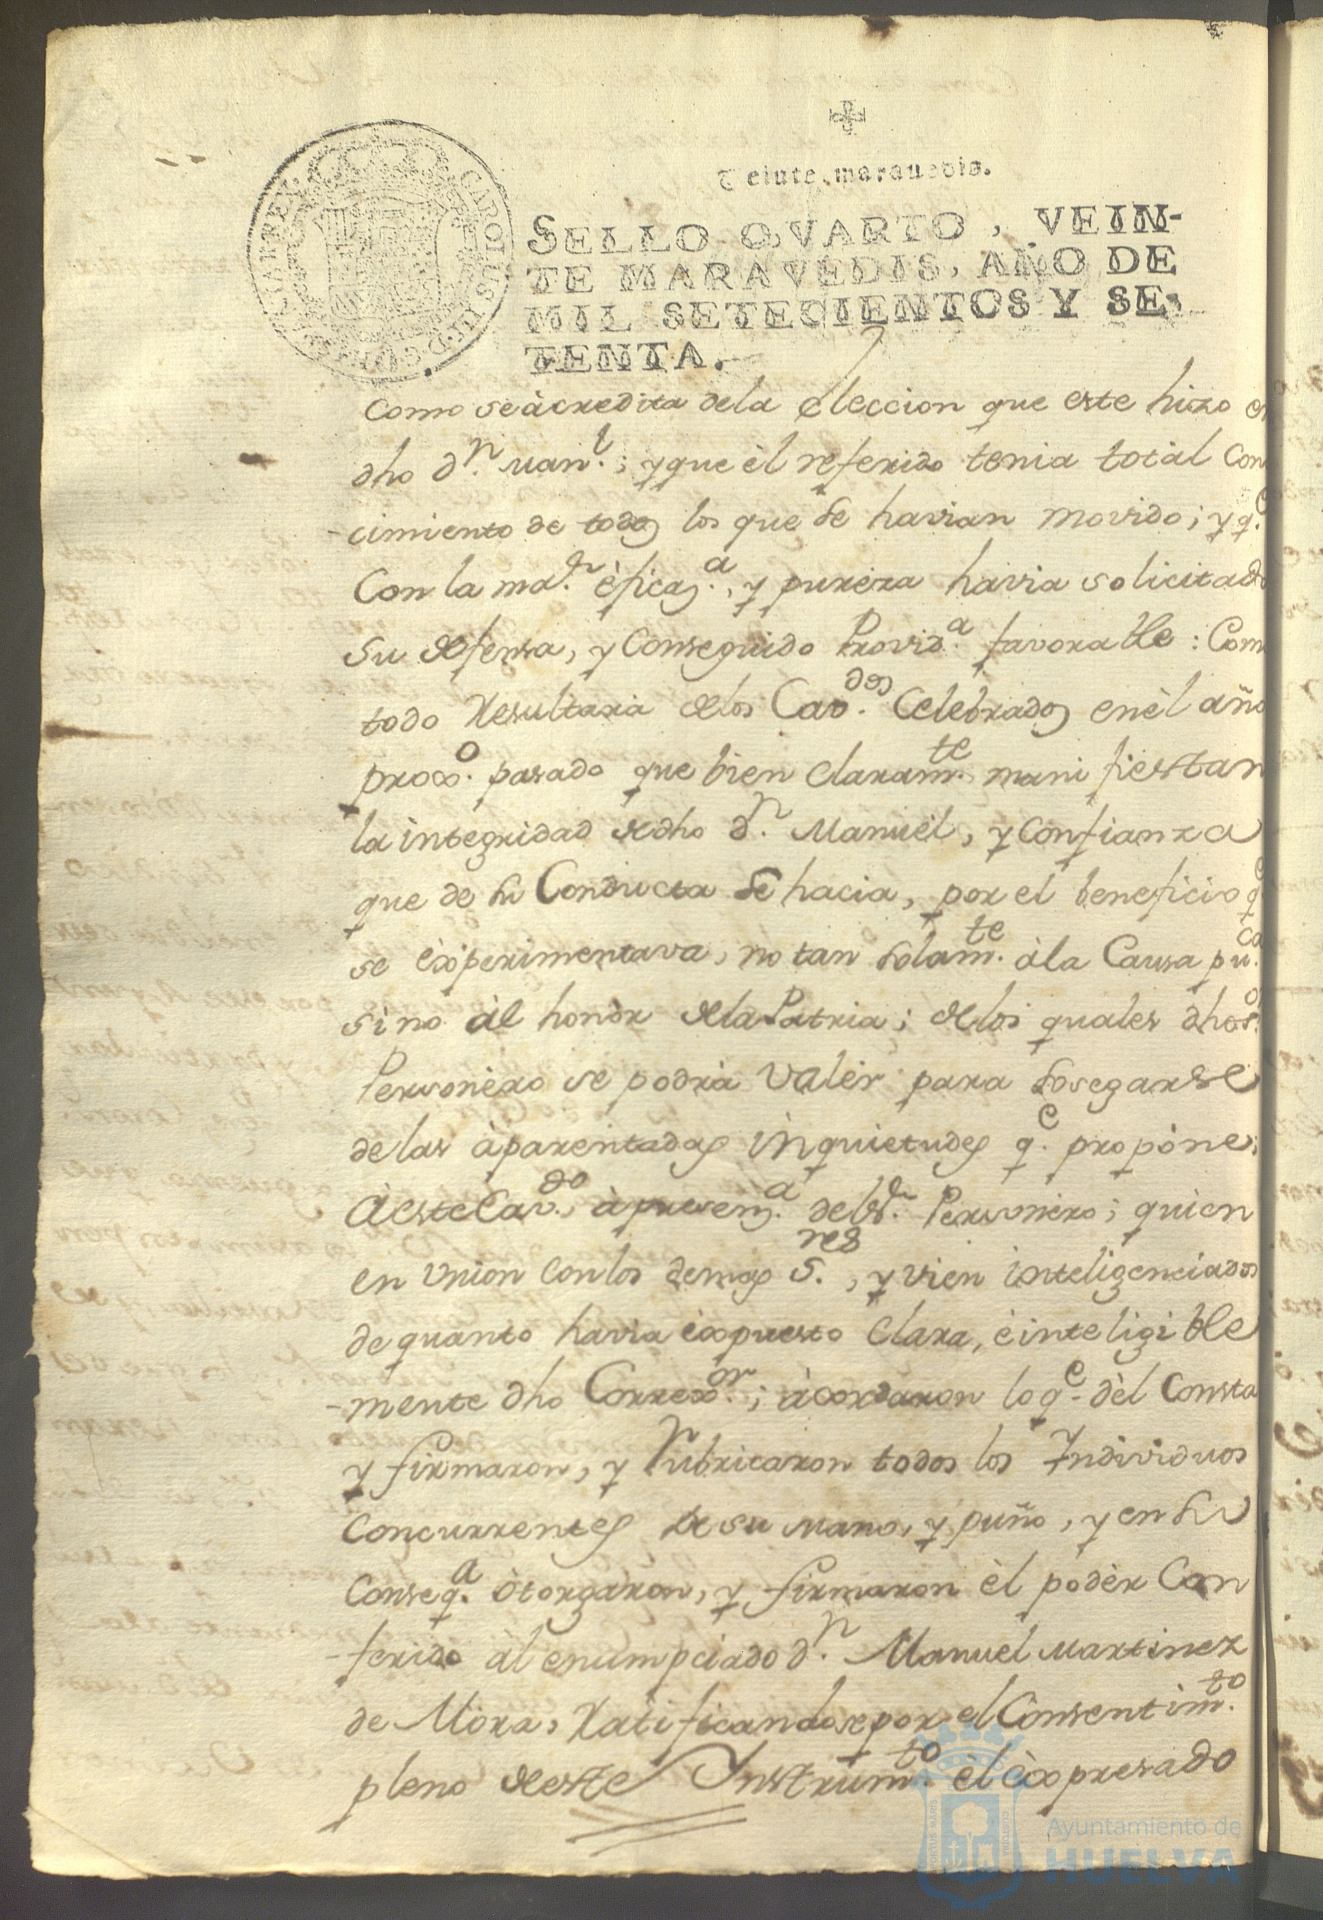 Veinte marauedis.
SELLO QVARTO, VEIN-
TE MARAVEDIS, AÑO DE
MIL SETECIENTOS Y SE-
TENTA.
CAROLUS III D G HISPANIAR REX
como se àcredita dela eleccion que este hizo en
dho dn. Manl.; y que èl referido tenia totàl con
-cimiento de todos los que se havian movido; y qe.
Con la mar. èficaza., y pureza havia solicitado
su defensa, y Conseguido Provida. favorable: Com
todo Resultarà delos Cavdos. Celebrados en èl año
proxo. pasado que bien claramte. manifiestan
la integridad dedho dn. Manuèl, y Confianza
que de su Conducta se hacia, por el beneficio qe
se experimentava, no tan solamte. àla Causa puca.
sino àl honòr dela Patria; delos quales dhos.
Personèro se podrà valèr para sosegarse
de las àparentadas inquietudes qe. propòne;
À este Cavdo., à presenza. del Sr. Personèro; quien
en Union con los demas Sres., y vien inteligenciados
de quanto havia èxpuesto Clara, è inteligible
-mente dho Correxor.; àcordaron lo qe. dèl Consta
y firmaron, y Rubricaron todos los Individuos
Concurrentes de su mano, y puño, y en su
Conseqa. òtorgaron, y firmaron èl podèr Con
-ferido àl enumpciado dn. Manuel Martinez
de Mora, Ratificandose por el Consentimto.
pleno deeste Instrumto. èl èxpresado
Ayuntamiento de
HUELVA